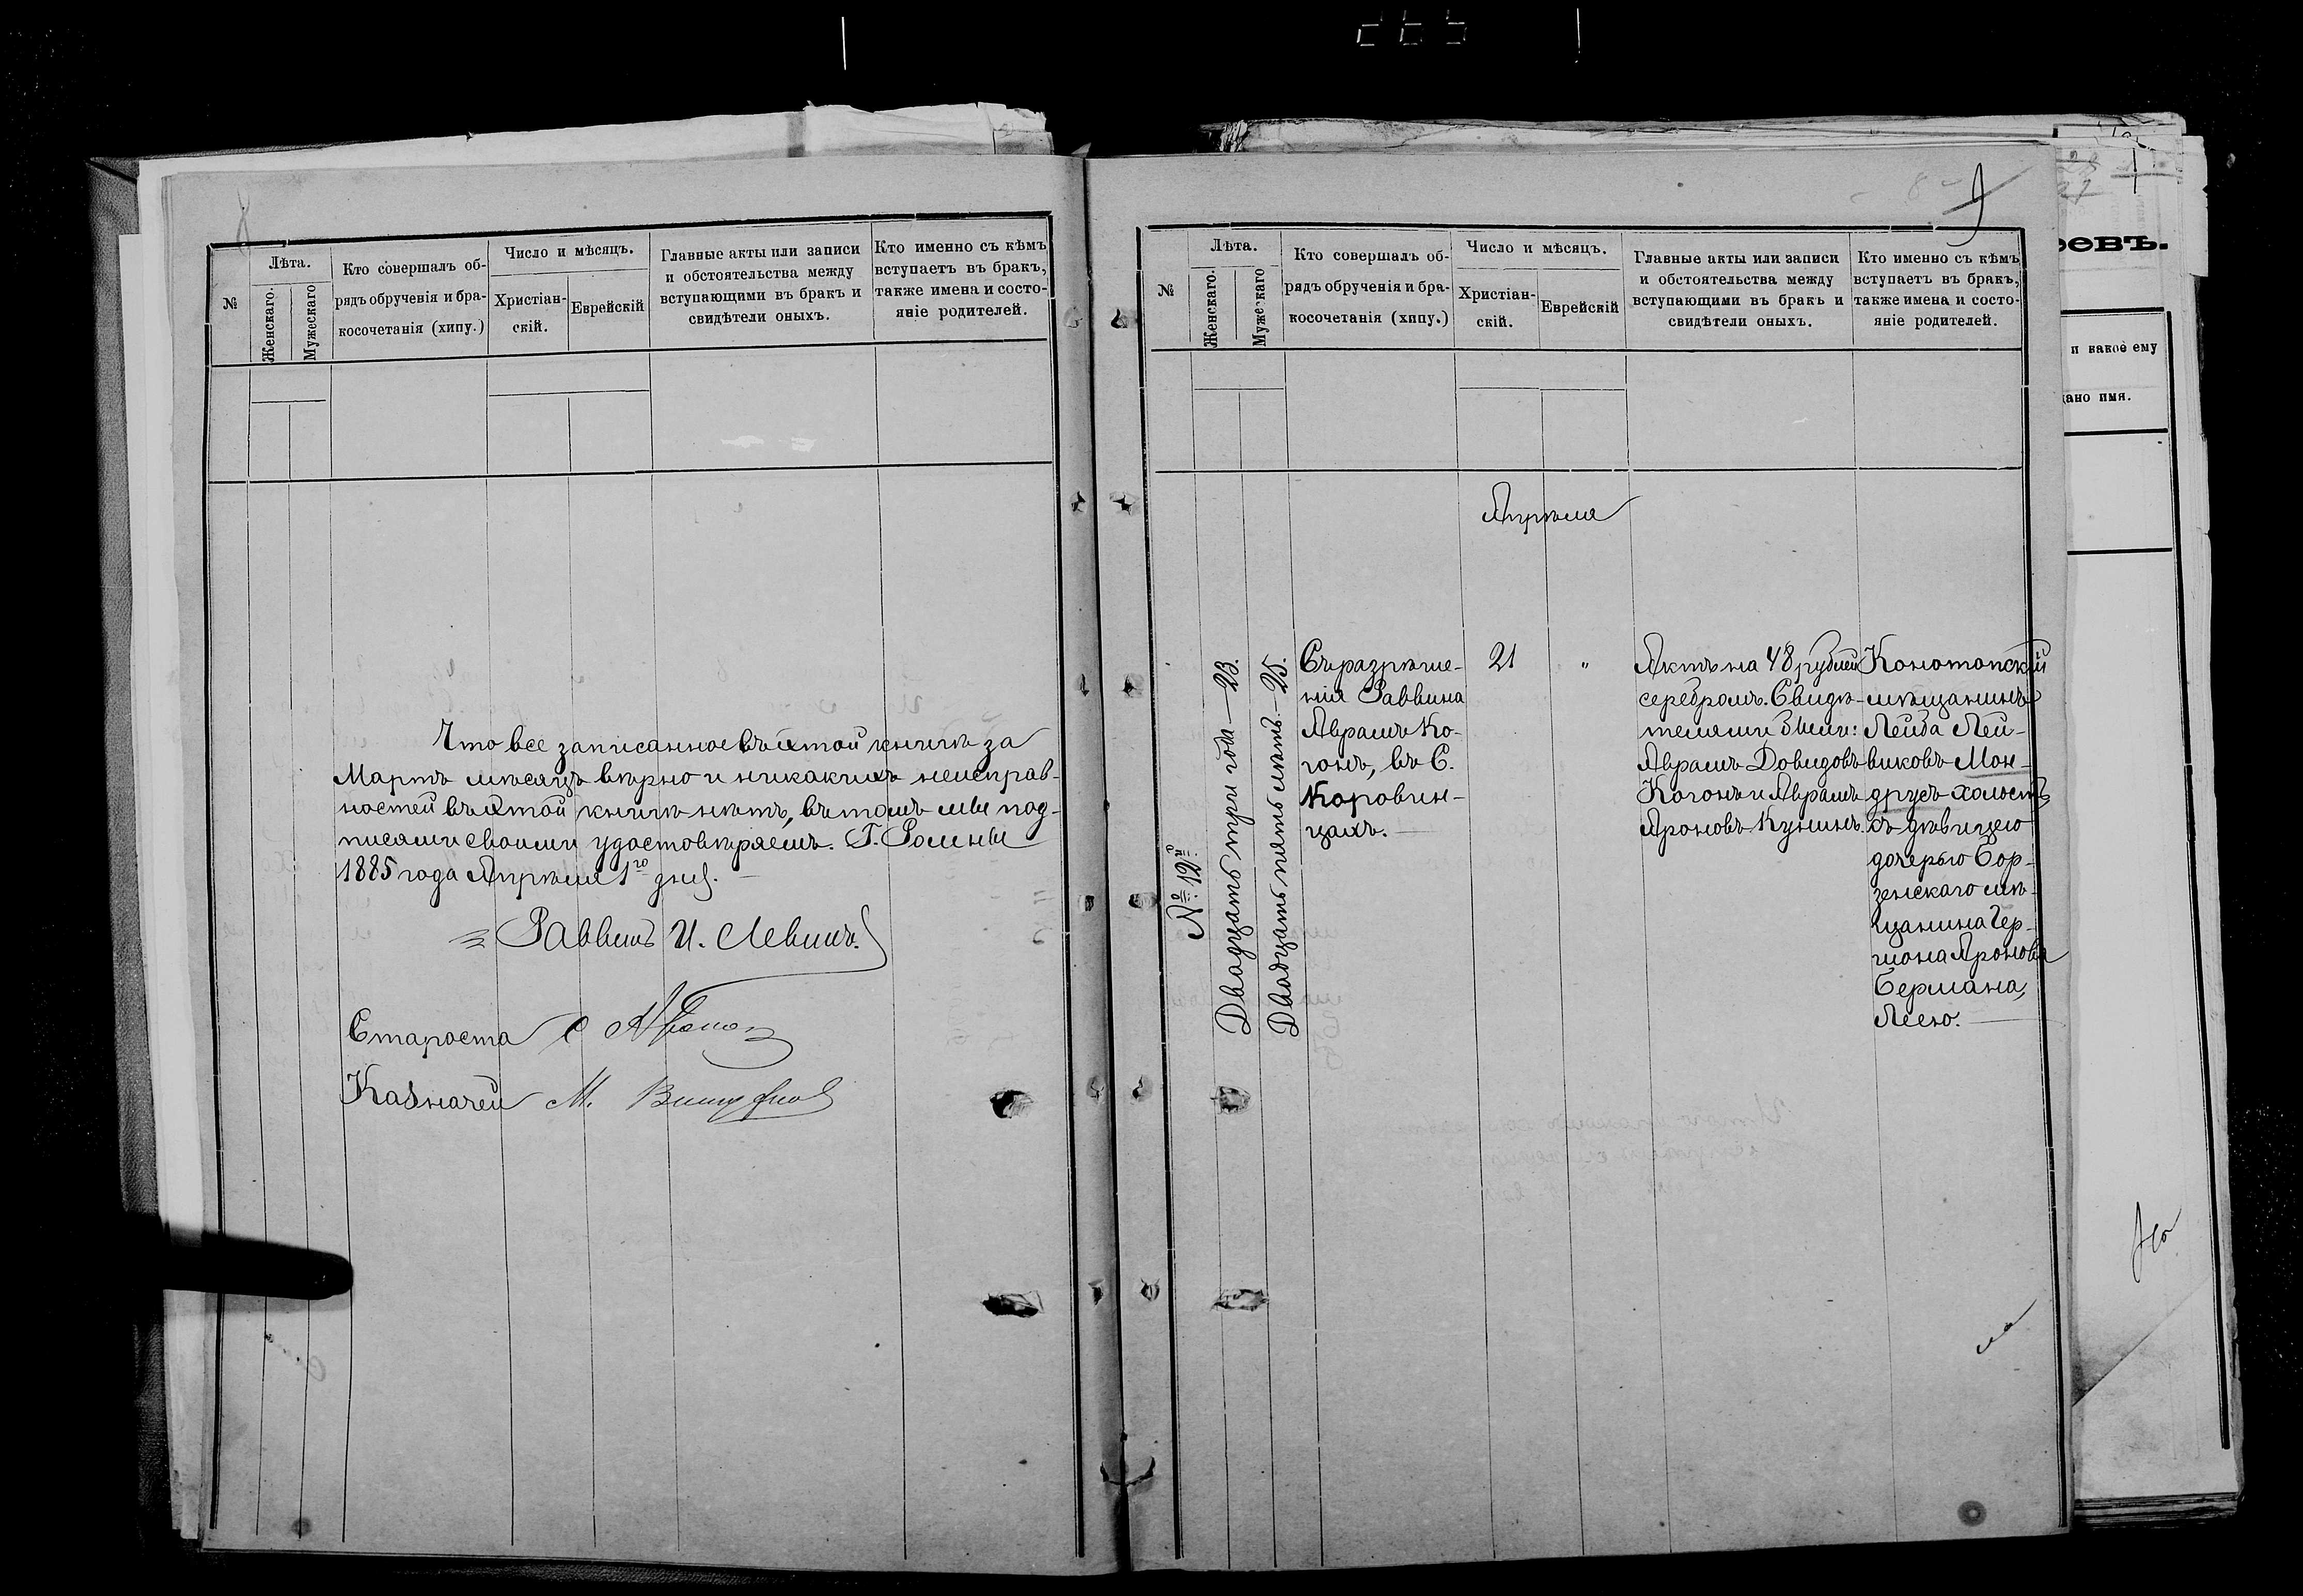 №
Лѣта.
Женскаго.
Мужескаго
Кто совершалъ об-
рядъ обрученія и бра-
косочетанія (хипу.)
Число и мѣсяцъ.
Христіан-
скій.
Еврейскій
Главные акты или записи
и обстоятельства между
вступающими въ бракъ и
свидѣтели оныхъ.
Кто именно съ кѣмъ
вступаетъ въ бракъ,
также имена и состо-
яніе родителей.
Что все записанное въ этой книгѣ за
Мартъ мѣсяцъ вѣрно и никакихъ неисправ-
ностей въ этой книгѣ нѣтъ, въ томъ мы под-
писями своими удостовѣряемъ. Г. Ромны
1885 года Апрѣля 1го дня.
Раввинъ И. Левинъ.
Староста
Казначей М.
9
№
Лѣта.
Женскаго.
Мужескаго
Кто совершалъ об-
рядъ обрученія и бра-
косочетанія (хипу.)
Число и мѣсяцъ.
Христіан-
скій.
Еврейскій
Главные акты или записи
и обстоятельства между
вступающими въ бракъ и
свидѣтели оныхъ.
Кто именно съ кѣмъ
вступаетъ въ бракъ,
также имена и состо-
яніе родителей.
Апрѣля
№ 12й
Двадцать три года — 23.
Двадцать пять лѣтъ. — 25.
Съ разрѣше-
нія Раввина
Аврамъ Ко-
гонъ, въ С.
Коровин-
цахъ.
21
"
Актъ на 48 рублей
серебромъ. Свидѣ-
телями были:
Аврамъ Довидовъ
Когонъ и Аврамъ
Ароновъ Кунинъ.
Конотопскій
мѣщанинъ
Лейба Лей-
виковъ Мон-
друсъ холостъ
съ дѣвицею
дочерью Бор-
зенскаго мѣ-
щанина Гер-
шона Аронова
Бермана,
Леею.
еевъ.
и какое ему
дано имя.